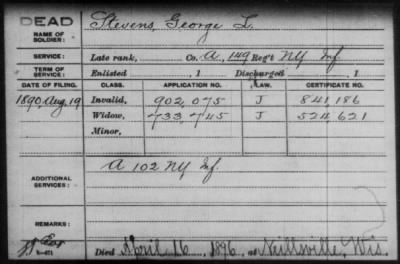 DEAD
NAME OF SOLDIER: Stevens, George L.
SERVICE: Late rank, Co. A, 149 Reg't NY Inf
TERM OF SERVICE: Enlisted , 1 Discharged , 1
DATE OF FILING. CLASS. APPLICATION NO. LAW. CERTIFICATE NO.
1890, Aug. 19 Invalid, 902,075 J 841,186
Widow, 733,745 J 524,621
Minor,
ADDITIONAL SERVICES: A 102 NY Inf.
REMARKS:
Died April 16, 1896, at Neillsville, Wis.